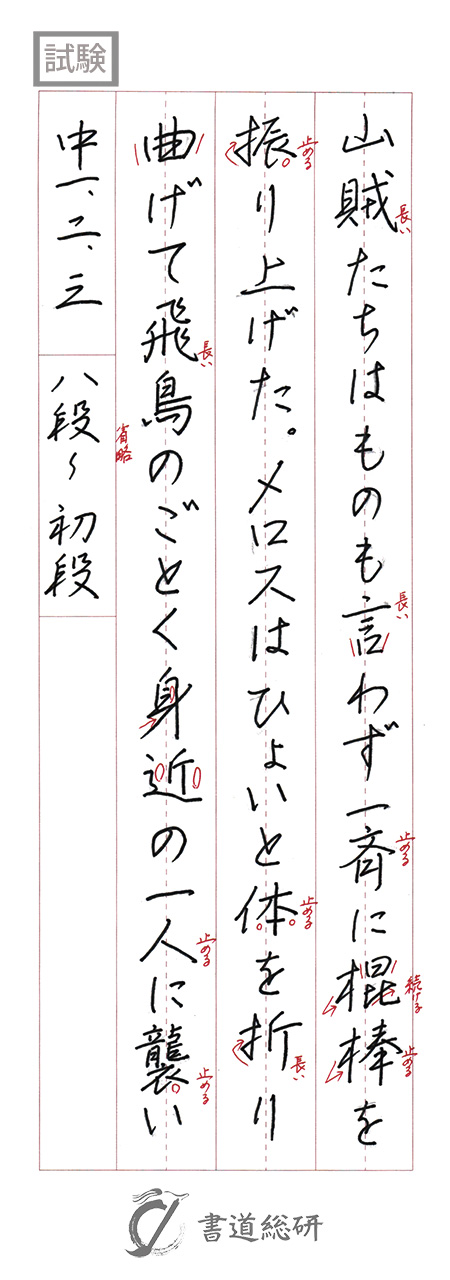 試験
山賊たちはものも言わず一斉に棍棒を
長い
長い
止める
続ける
止める
振り上げた。メロスはひょいと体を折り
止める
止める
長い
曲げて飛鳥のごとく身近の一人に襲い
長い
省略
止める
止める
中一、二、三
八段〜初段
書道総研